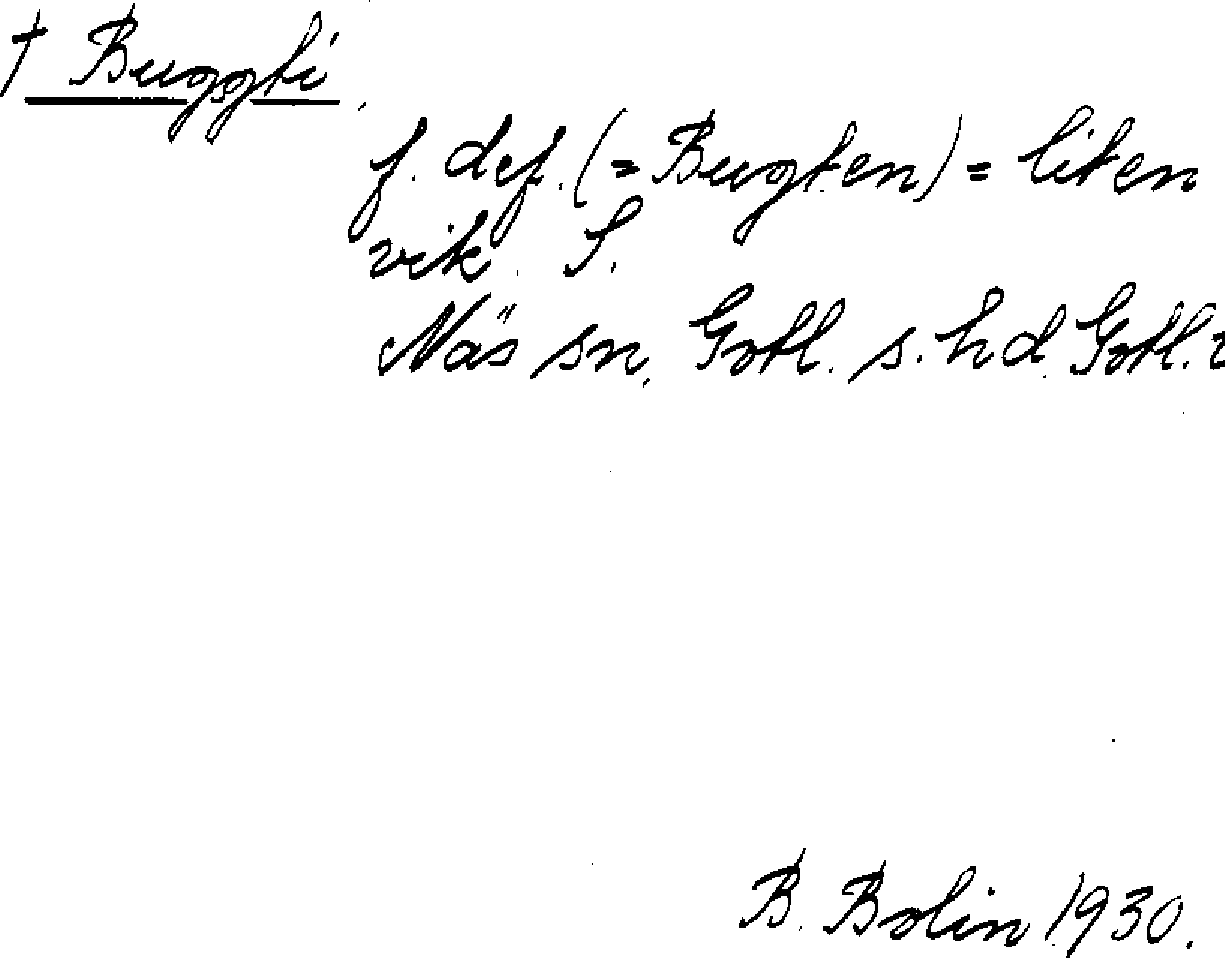 † Buggti
f. def. (= Bugten) = liten
vik. S.
Näs sn, Gotl. s. hd. Gotl.
B. Bolin 1930.